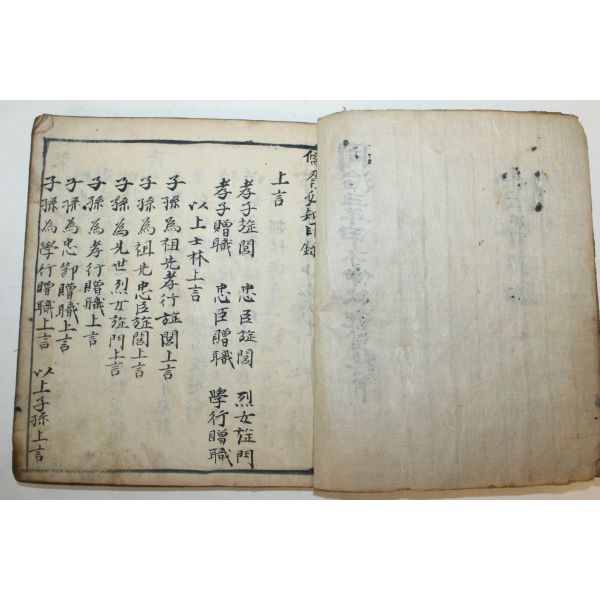 儒胥必知目錄
上言
孝子旌閭 忠臣旌閭 烈女旌門
孝子贈職 忠臣贈職 學行贈職
以上士林上言
子孫為祖先孝行旌閭上言
子孫為祖先忠臣旌閭上言
子孫為先世烈女旌門上言
子孫為孝行贈職上言
子孫為忠節贈職上言
子孫為學行贈職上言 以上子孫上言